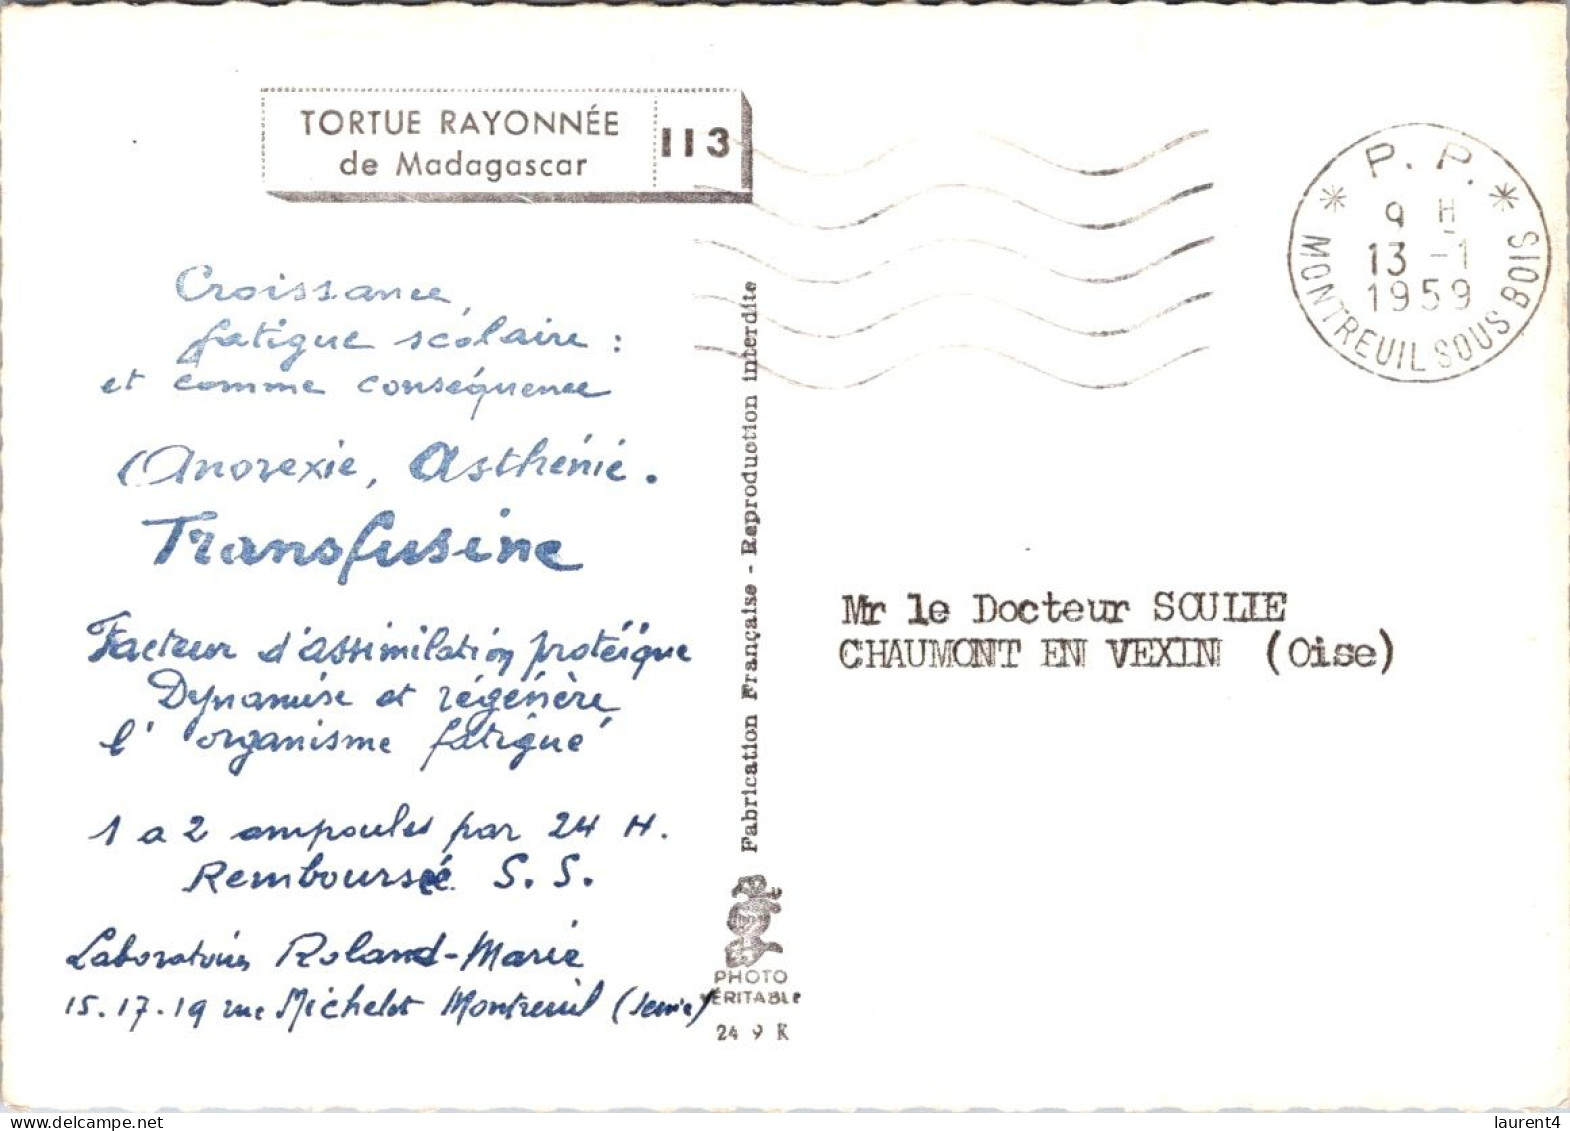 TORTUE RAYONNÉE
de Madagascar
113
Croissance,
fatigue scolaire :
et comme conséquence
Anorexie, Asthénie.
Transfusine
Facteur d'assimilation protéique
Dynamise et régénère
l'organisme fatigué
1 a 2 ampoules par 24 H.
Remboursée S. S.
Laboratoires Roland-Marie
15.17.19 rue Michelet Montreuil (Seine)
Fabrication Française - Reproduction interdite
PHOTO
VÉRITABLE
24 9 K
P. P.
9 H
13 -1
1959
* MONTREUIL SOUS BOIS *
Mr le Docteur SOULIE
CHAUMONT EN VEXIN (Oise)
laurent4